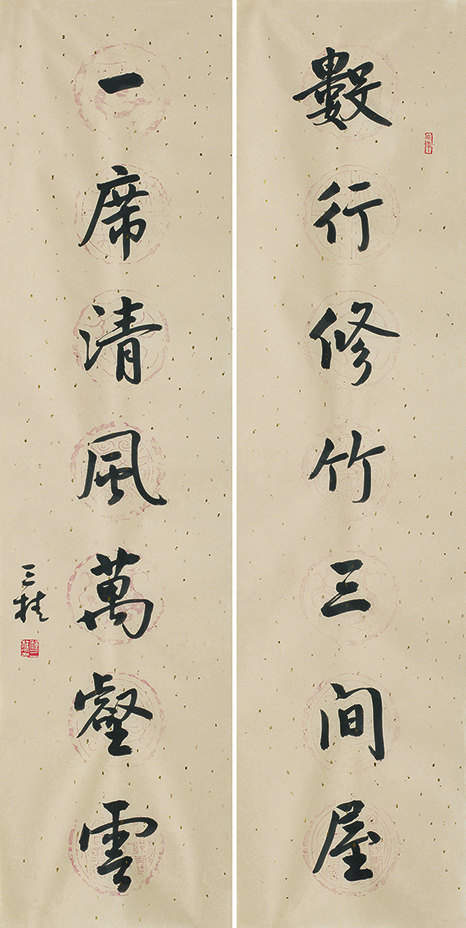 數行修竹三间屋
一席清風萬壑雲
三桂